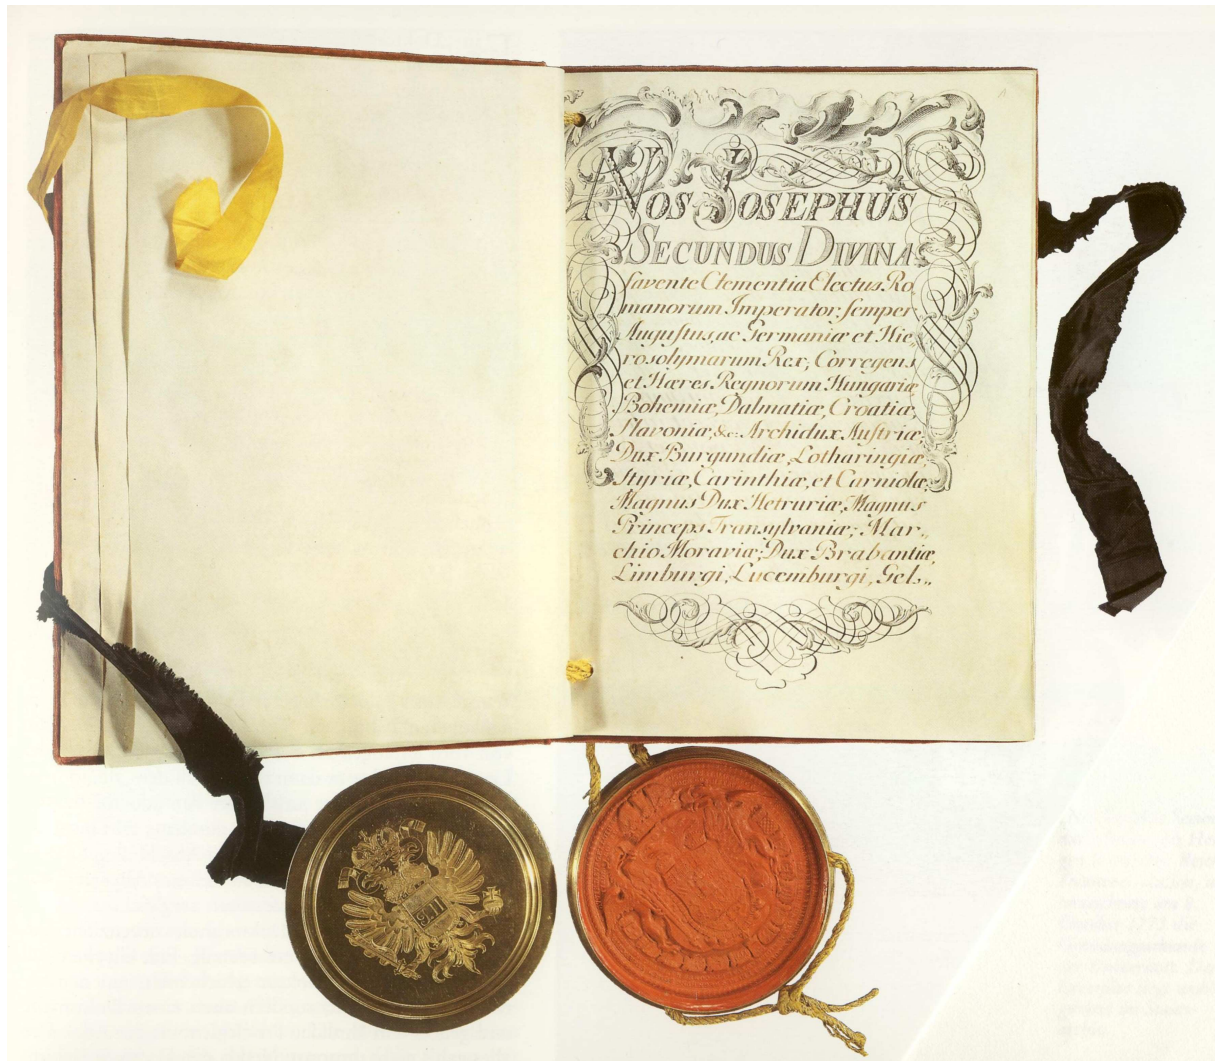 NOS JOSEPHUS
SECUNDUS DIVINA
favente Clementia Electus Ro
manorum Imperator, semper
Augustus, ac Germaniæ et Hie,,
rosolymarum Rex, Corregens
et Hæres Regnorum Hungariæ
Bohemiæ, Dalmatiæ, Croatiæ,
Slavoniæ, &c: Archidux Austriæ,
Dux Burgundiæ, Lotharingiæ
Styriæ, Carinthiæ, et Carniolæ
Magnus Dux Hetruriæ, Magnus
Princeps Transylvaniæ, Mar,,
chio Moraviæ, Dux Brabantiæ,
Limburgi, Lucemburgi, Gel,,